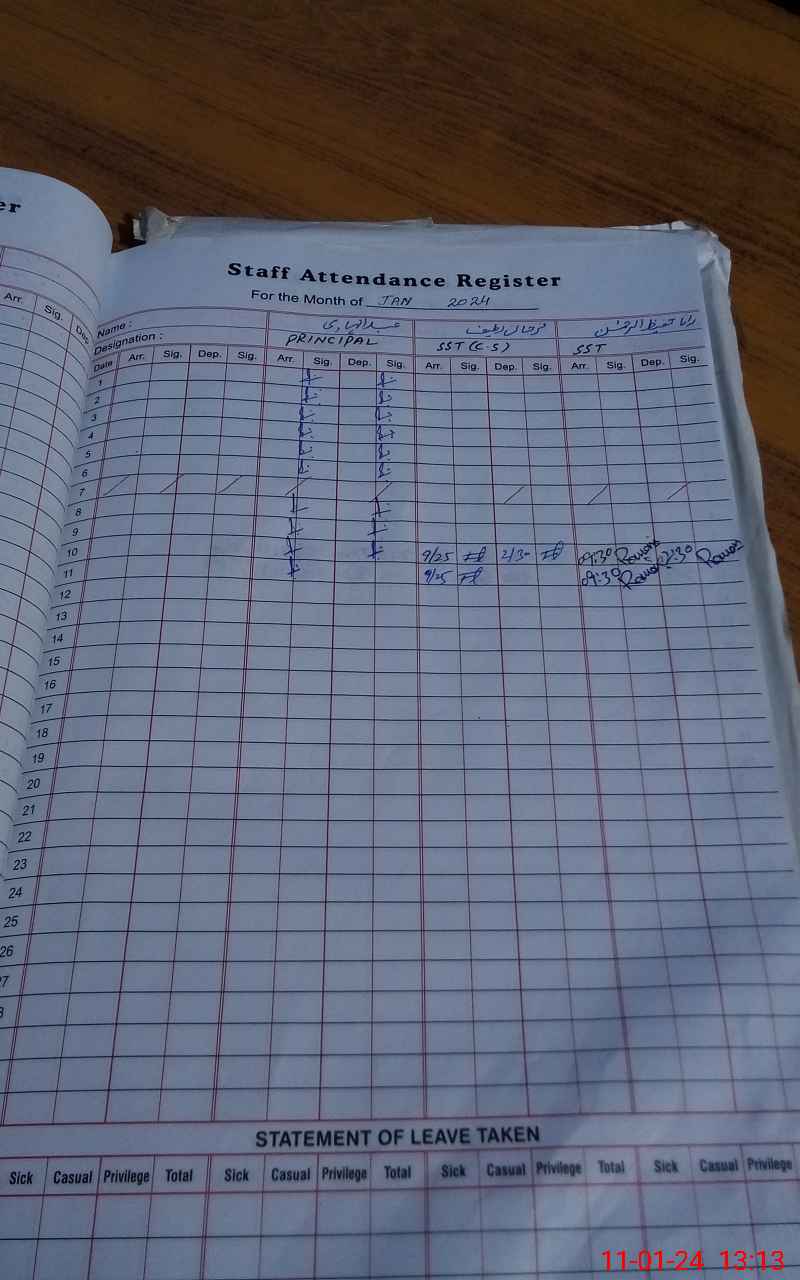 er
Staff Attendance Register
For the Month of JAN 2024
Arr. Sig. Dep.
Name :
Designation : PRINCIPAL SST (C.S) SST
Date Arr. Sig. Dep. Sig. Arr. Sig. Dep. Sig. Arr. Sig. Dep. Sig. Arr. Sig. Dep. Sig.
1
2
3
4
5
6
7
8
9
10 9/25 2/30 09:30 2:30
11 9/25 09:30
12
13
14
15
16
17
18
19
20
21
22
23
24
25
26
7
8
STATEMENT OF LEAVE TAKEN
Sick Casual Privilege Total Sick Casual Privilege Total Sick Casual Privilege Total Sick Casual Privilege
11-01-24 13:13